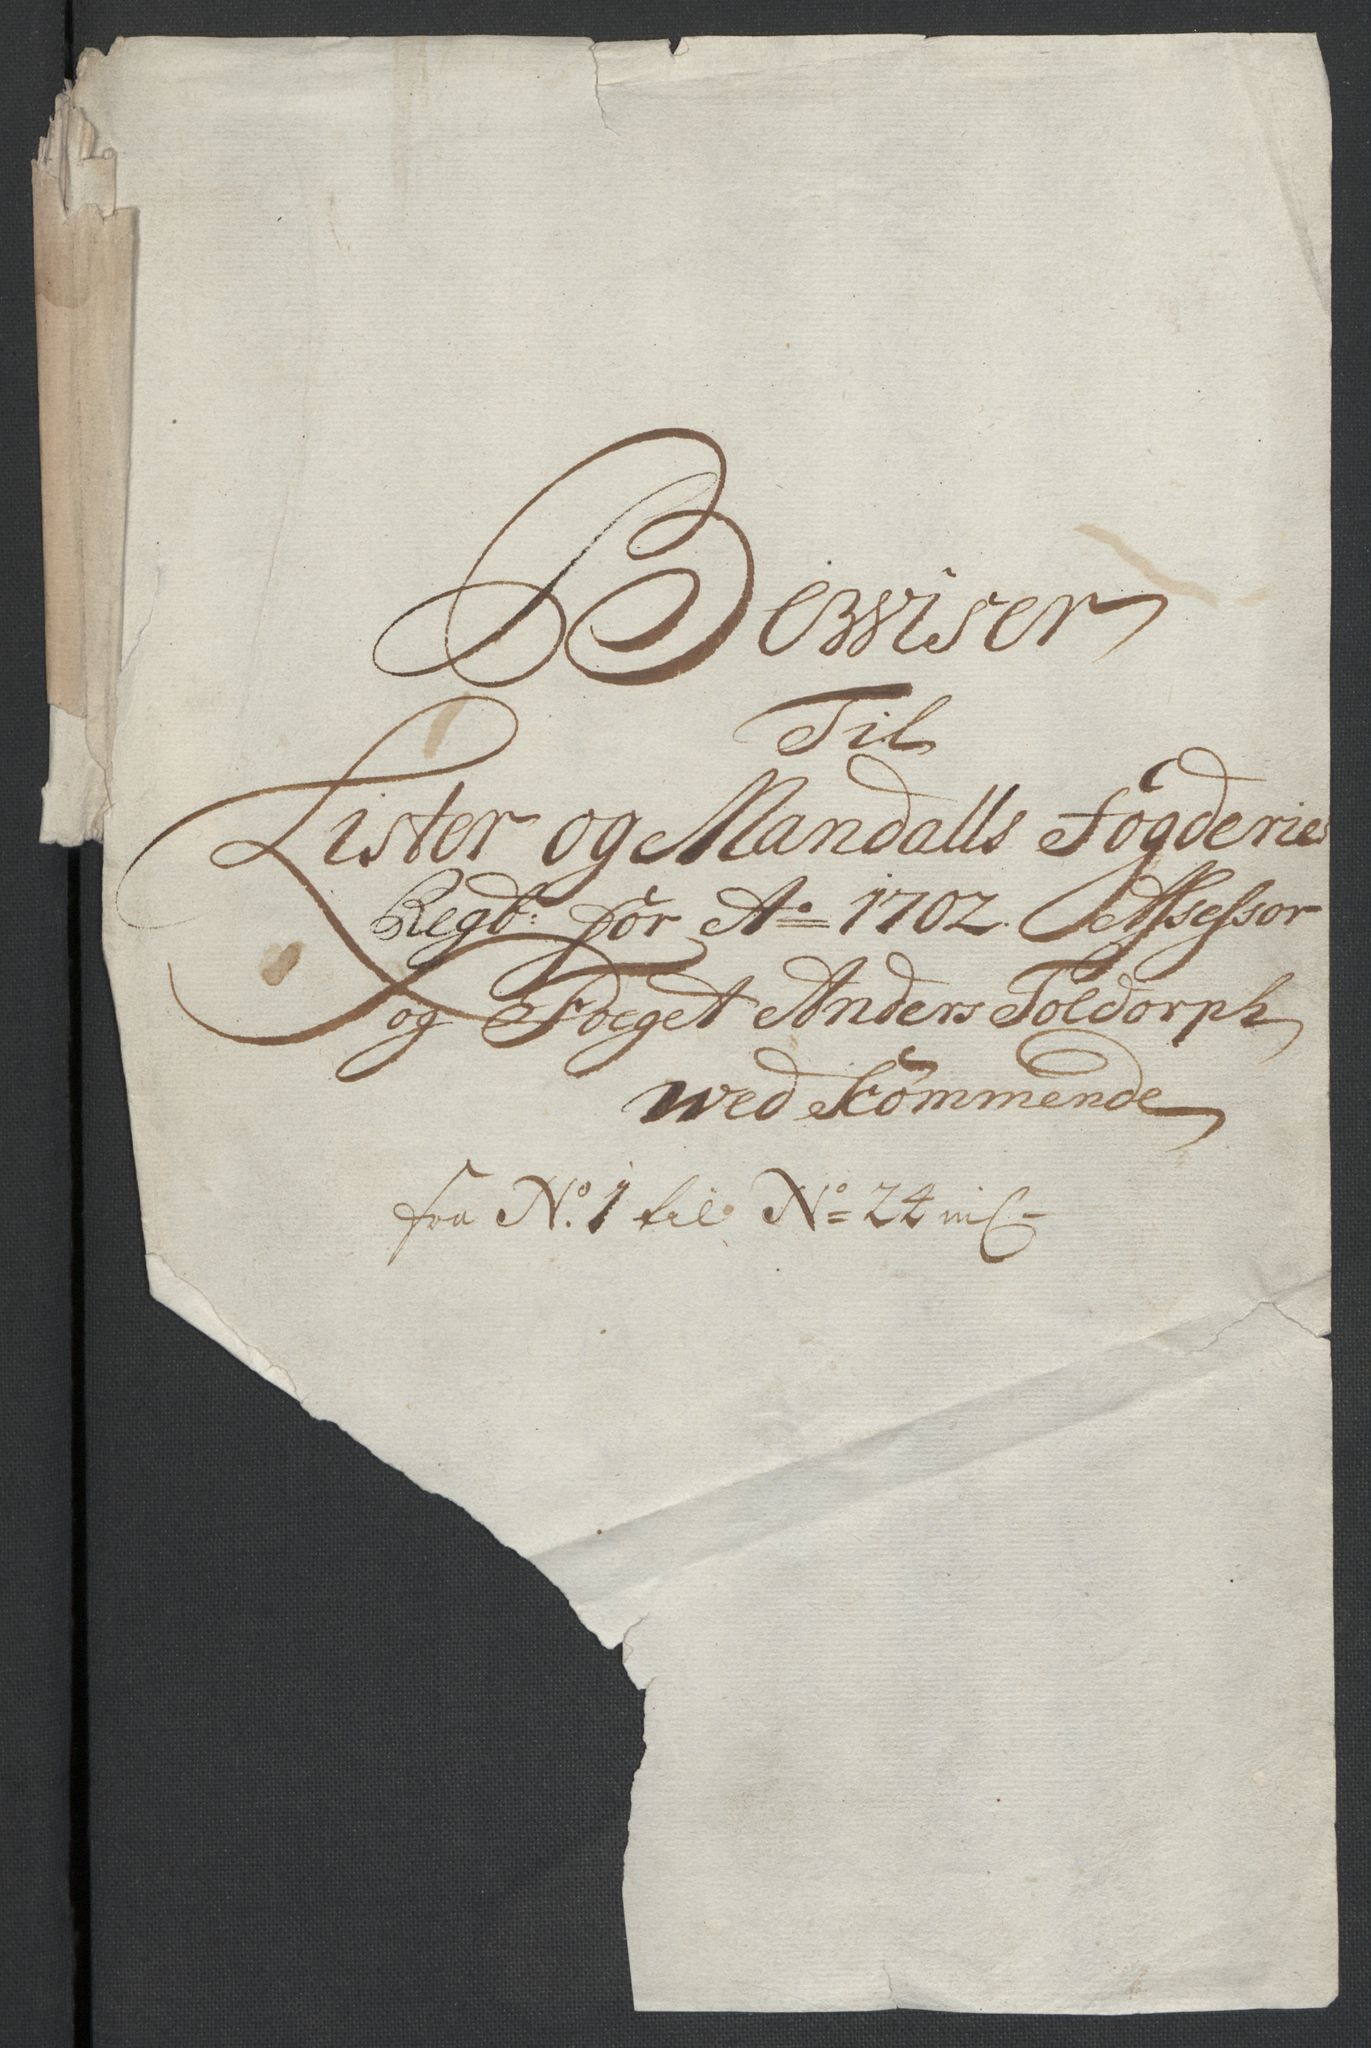 Bewiser
Til
Lister og Mandalls Fögderies
Regb: for Ao 1702. Assessor
og Foeget Anders Toldorph
wed kommende
fra No. 1 til No 24 incl